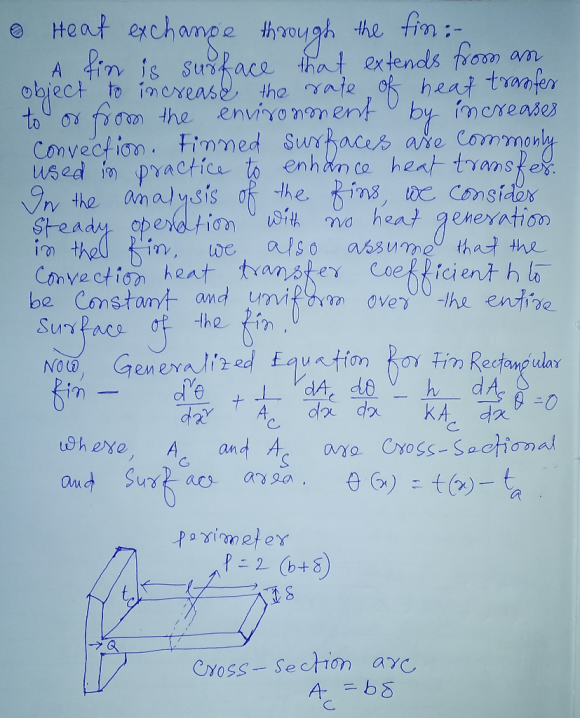 Heat exchange through the fin :-
A fin is surface that extends from an
object to increase the rate of heat tranfer
to or from the environment by increases
convection. Finned surfaces are commonly
used in practice to enhance heat transfer.
In the analysis of the fins, we consider
steady operation with no heat generation
in the fin. we also assume that the
convection heat transfer coefficient h to
be constant and uniform over the entire
surface of the fin.
Now, Generalized Equation for Fin Rectangular
fin — d²θ/dx² + 1/A_c dA_c/dx dθ/dx - h/kA_c dA_s/dx θ = 0
where, A_c and A_s are cross-sectional
and surface area. θ(x) = t(x) - t_a.
perimeter
P = 2 (b+δ)
t_c
δ
→ Q
cross-section are
A_c = bδ